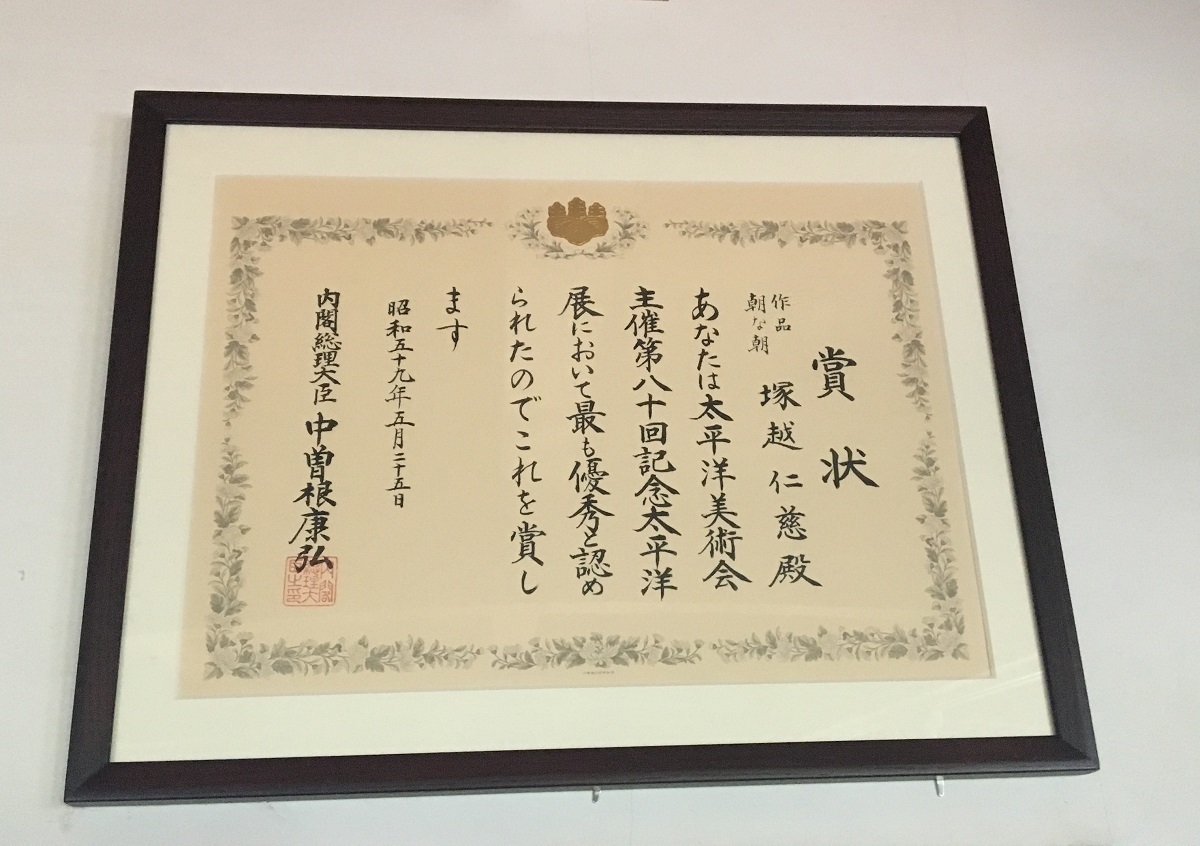 賞状
作品
朝な朝
塚越仁慈殿
あなたは太平洋美術会
主催第八十回記念太平洋
展において最も優秀と認め
られたのでこれを賞し
ます
昭和五十九年五月二十五日
内閣総理大臣 中曽根康弘